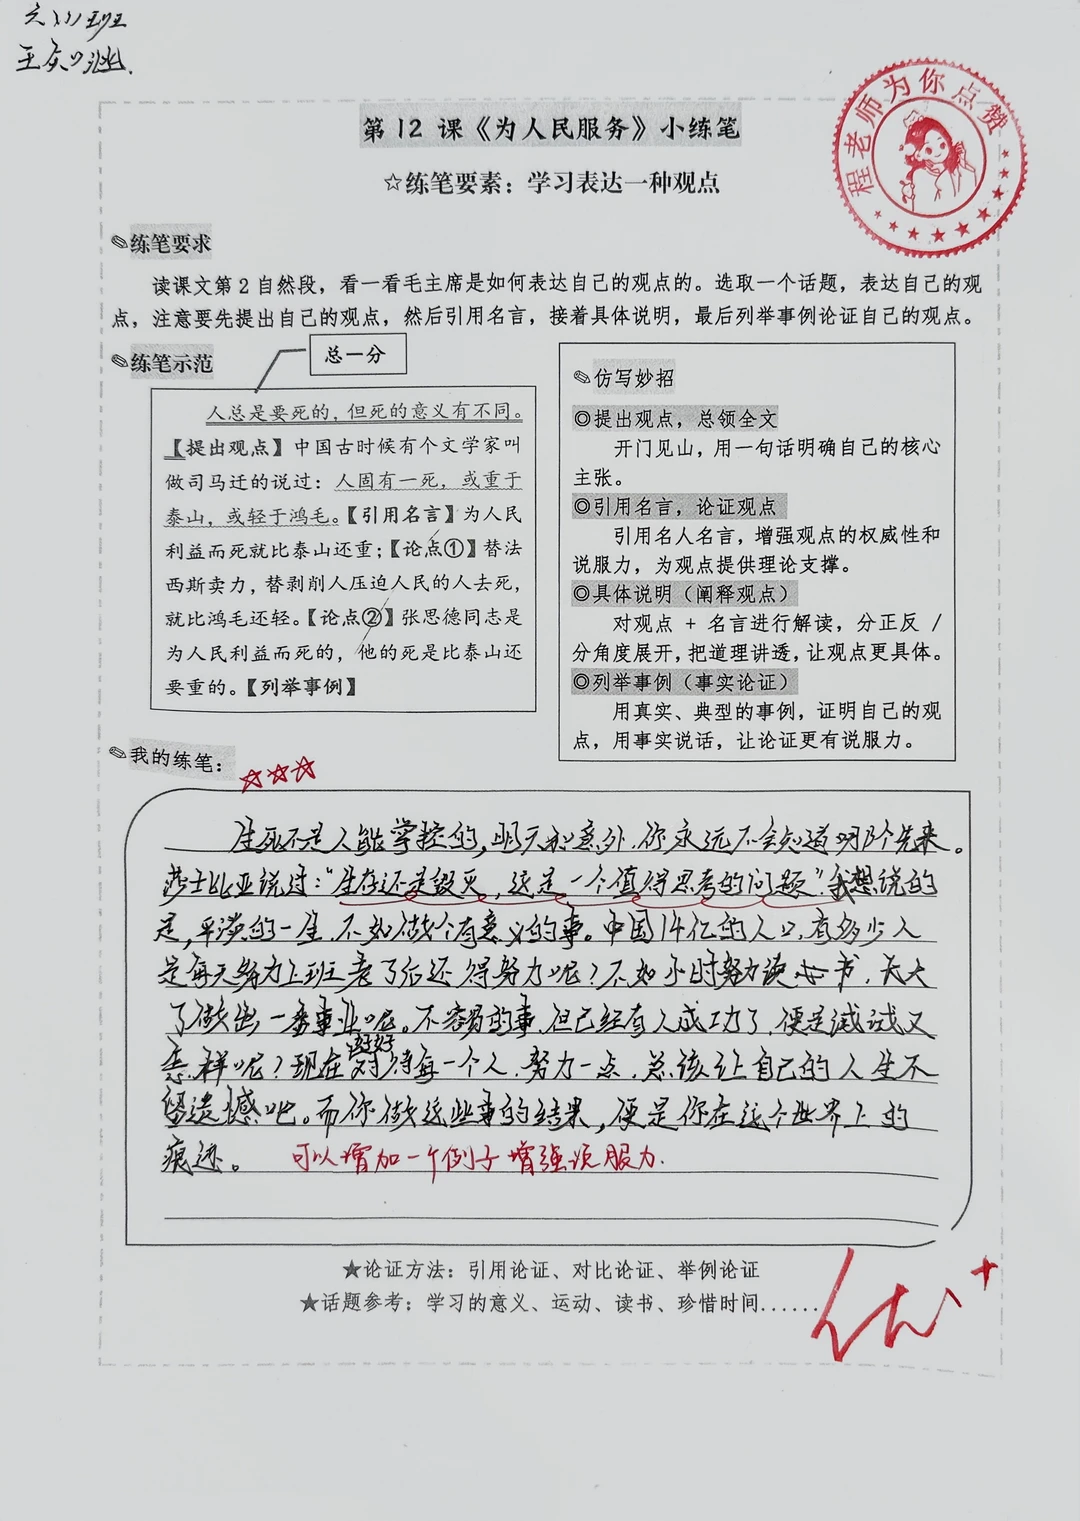 六(1)班
王
程老师为你点赞
第12 课《为人民服务》小练笔
☆练笔要素：学习表达一种观点
✎练笔要求
读课文第2自然段，看一看毛主席是如何表达自己的观点的。选取一个话题，表达自己的观
点，注意要先提出自己的观点，然后引用名言，接着具体说明，最后列举事例论证自己的观点。
✎练笔示范
总一分
人总是要死的，但死的意义有不同。
【提出观点】中国古时候有个文学家叫
做司马迁的说过：人固有一死，或重于
泰山，或轻于鸿毛。【引用名言】为人民
利益而死就比泰山还重；【论点①】替法
西斯卖力，替剥削人压迫人民的人去死，
就比鸿毛还轻。【论点②】张思德同志是
为人民利益而死的，他的死是比泰山还
要重的。【列举事例】
✎仿写妙招
◎提出观点，总领全文
开门见山，用一句话明确自己的核心
主张。
◎引用名言，论证观点
引用名人名言，增强观点的权威性和
说服力，为观点提供理论支撑。
◎具体说明（阐释观点）
对观点 + 名言进行解读，分正反 /
分角度展开，把道理讲透，让观点更具体。
◎列举事例（事实论证）
用真实、典型的事例，证明自己的观
点，用事实说话，让论证更有说服力。
✎我的练笔：
☆☆☆
生死不是人能掌控的，明天和意外，你永远不会知道哪个先来。
莎士比亚说过："生存还是毁灭，这是一个值得思考的问题"。我想说的
是，平淡的一生，不如做个有意义的事。中国14亿的人口，有多少人
是每天努力上班老了后还得努力呢？不如小时努力读书，长大
了做出一番事业呢。不容易的事，但已经有人成功了，便是试试又
怎样呢？现在好好对待每一个人，努力一点，总该让自己的人生不
留遗憾吧。而你做这些事的结果，便是你在这个世界上的
痕迹。 可以增加一个例子增强说服力.
★论证方法：引用论证、对比论证、举例论证
★话题参考：学习的意义、运动、读书、珍惜时间......
优+